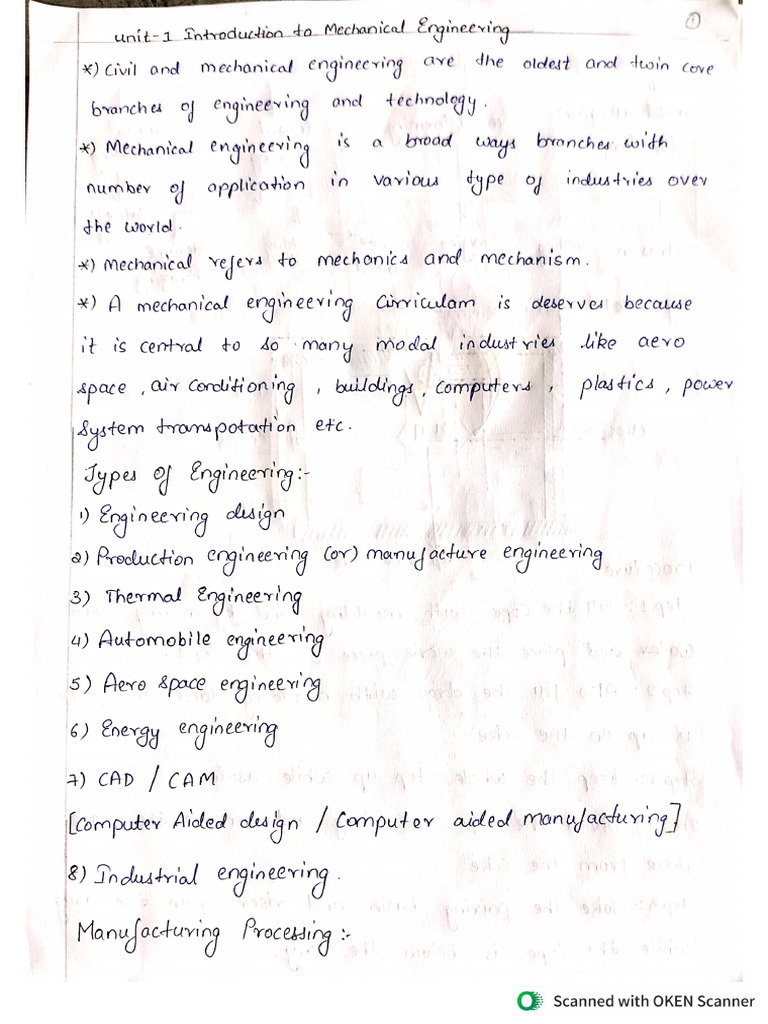 ①
Unit-1 Introduction to Mechanical Engineering
*) Civil and mechanical engineering are the oldest and twin core
branches of engineering and technology.
*) Mechanical engineering is a broad ways branches with
number of application in various type of industries over
the world.
*) Mechanical refers to mechanics and mechanism.
*) A mechanical engineering Cirriculam is deserves because
it is central to so many modal industries like aero
space, air conditioning, buildings, computers, plastics, power
system transpotation etc.
Types of Engineering:-
1) Engineering design
2) Production engineering (or) manufacture engineering
3) Thermal Engineering
4) Automobile engineering
5) Aero space engineering
6) Energy engineering
7) CAD / CAM
[Computer Aided design / Computer aided manufacturing]
8) Industrial engineering.
Manufacturing Processing:-
Scanned with OKEN Scanner